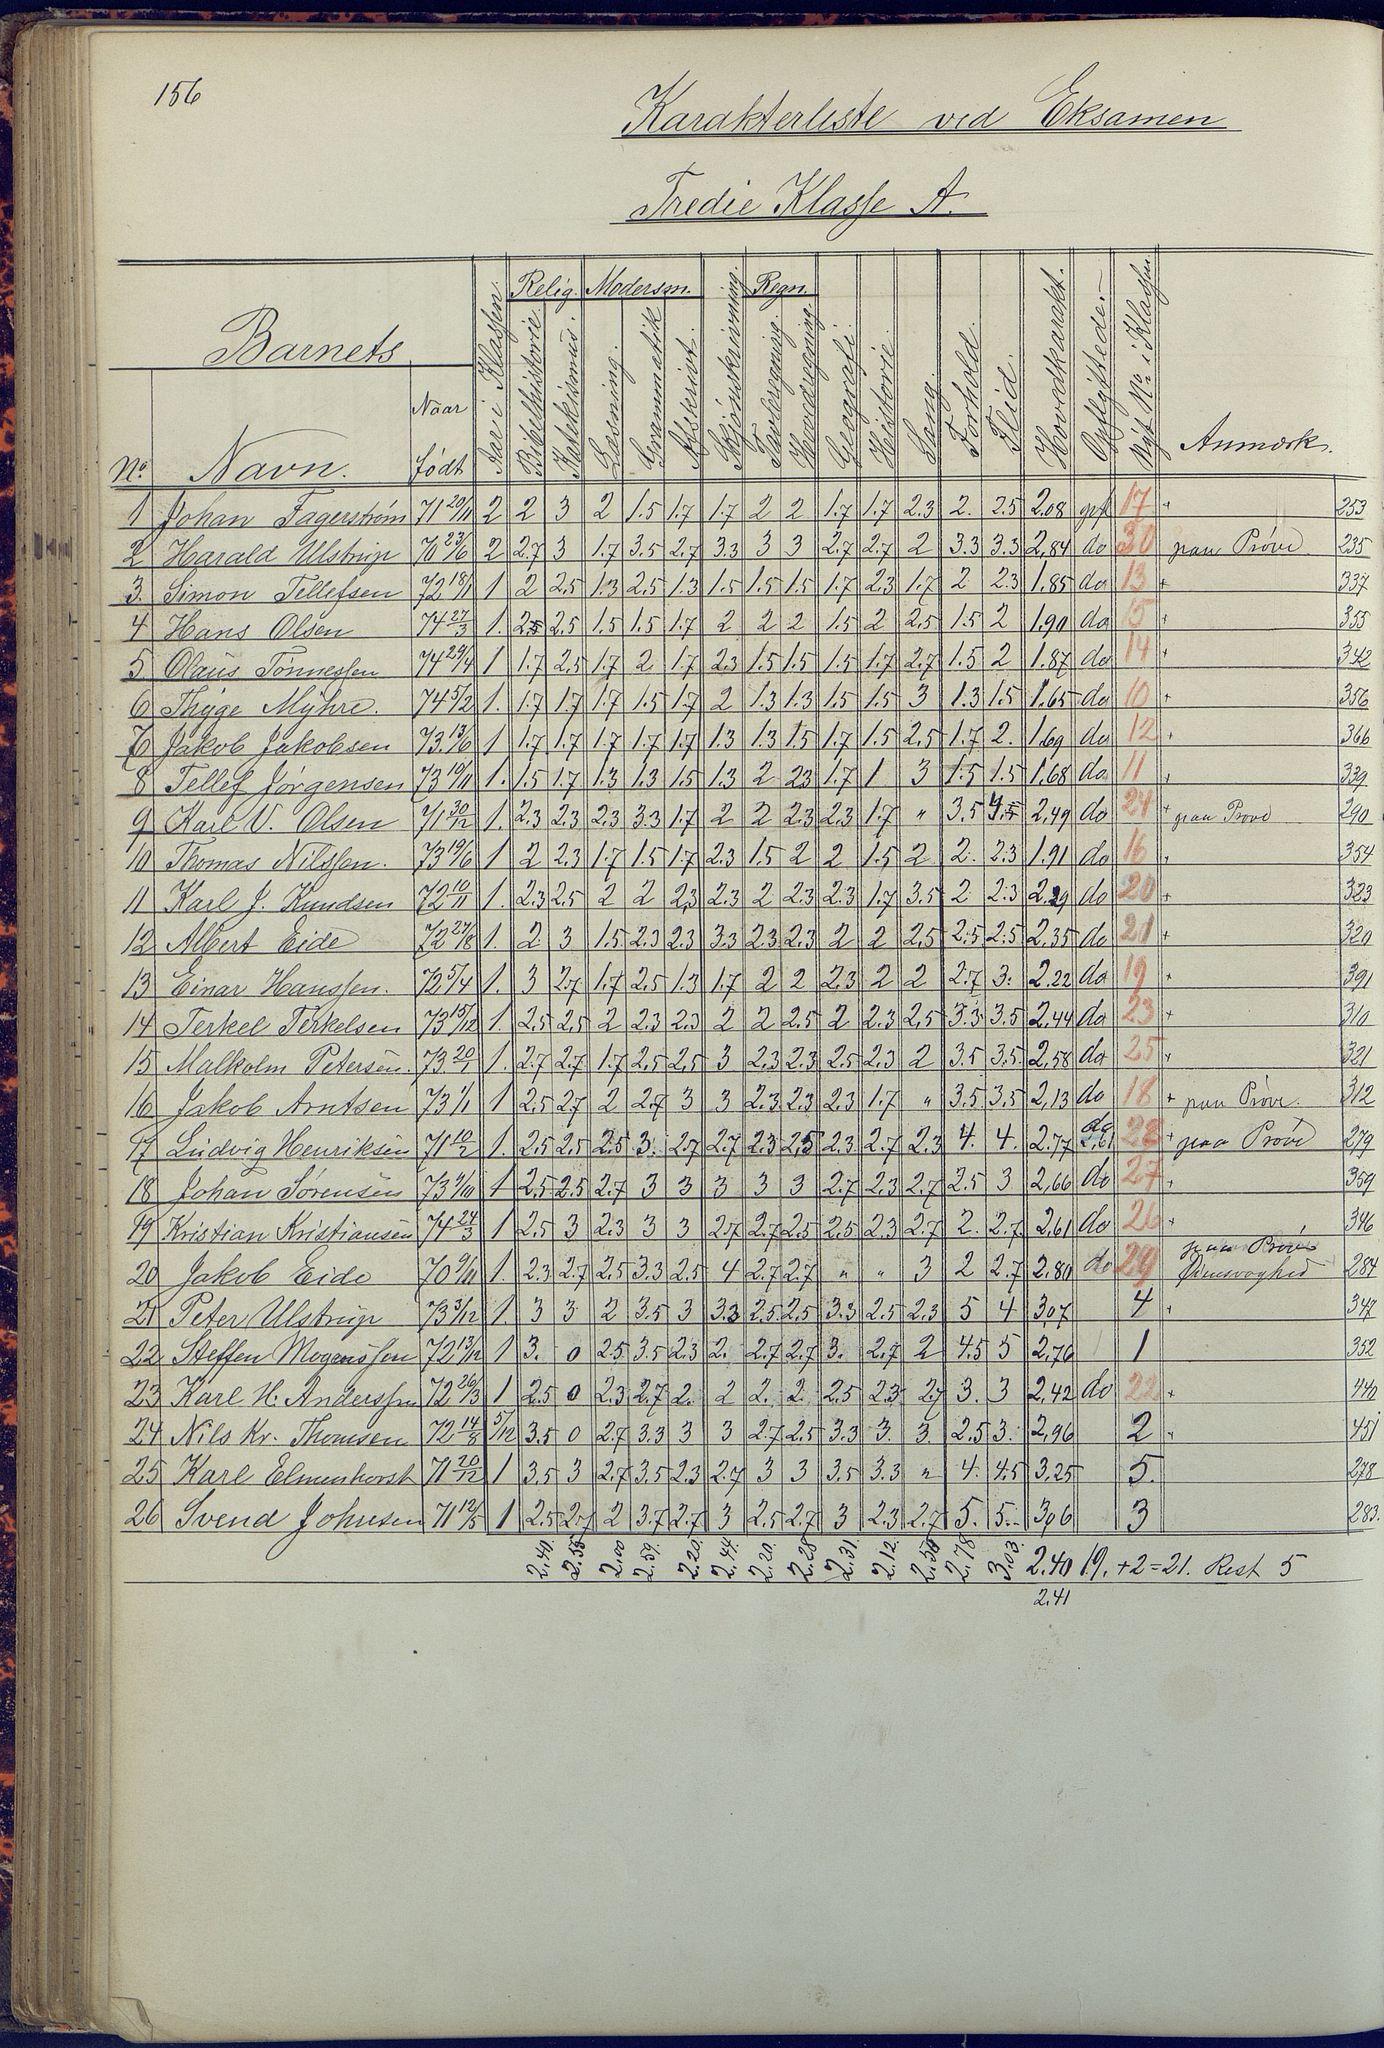 156
Karakterliste ved Eksamen
Tredie Klasse A.
Barnets
No. Navn. Naar født Aar i Klassen. Relig. Bibelhistorie. Katekismus. Modersm. Læsning. Grammatik Afskrivt. Skjönskrivning. Regn. Tavleregning. Hovedregning. Geografi. Historie. Sang. Forhold. Flid. Hovdkarakt. Opflyttede. Nyt No. i Klassen Anmærk.
1 Johan Fagerstrøm 71 20/11 2 2 3 2 1.5 1.7 1.7 2 2 1.7 1.7 2.3 2. 2.5 2.08 opfl 17 " 253
2 Harald Ulstrup 70 23/6 2 2.7 3 1.7 3.5 2.7 3.3 3 3 2.7 2.7 2 3.3 3.3 2,84 do 30 paa Prøve. 235
3. Simon Tellefsen 72 18/11 1 2 2.5 1.3 2.5 1.3 1.5 1.5 1.5 1.7 2.3 1.7 2 2.3 1.85 do 13 + 337
4 Hans Olsen 74 27/3 1. 2.5 2.5 1.5 1.5 1.7 2 2 2 1.5 2 2.5 1.5 2 1.90 do 15 + 355
5 Olaus Tönnessen 74 29/4 1 1.7 2.5 1.7 2 1.7 2.3 1.5 1.5 1.5 1.7 2.7 1.5 2 1.87 do 14 + 342
6 Thyge Myhre. 74 5/2 1. 1.7 1.7 1.7 1.5 1.7 2 1.3 1.3 1.5 1.5 3 1.3 1.5 1.65 do 10 + 356
7 Jakob Jakobsen 73 13/6 1 1.7 1.7 1.7 1.7 1.7 1.3 1.3 1.5 1.7 1.5 2.5 1.7 2. 1.69 do 12 + 366
8 Tellef Jørgensen 73 19/11 1. 1.5 1.7 1.3 1.3 1.5 1.3 2 2.3 1.7 1 3 1.5 1.5 1.68 do 11 + 339
9 Karl V. Olsen 71 30/12 1. 2.3 2.3 2.3 3.3 1.7 2 2 2.3 2.3 1.7 " 3.5 4.5 2,49 do 24 + paa Prøve 290
10 Thomas Nilssen. 73 19/6 1 2 2.3 1.7 1.5 1.7 2.3 1.5 2 2 1.5 2 2. 2.3 1.91 do 16 + 354
11 Karl J. Knudsen 72 10/11 1. 2.3 2.5 2 2 2,3 2.3 2 2.3 2.3 1.7 3.5 2 2.3 2.29 do 20 + 323
12 Albert Eide 72 27/8 1. 2 3 1.5 2.3 2.3 3.3 2.3 2.3 2 2 2,5 2.5 2.5 2.35 do 21 + 320
13 Einar Hanssen. 72 5/4 1. 3 2.7 1.7 2.5 1.3 1.7 2 2 2.3 2 2 2.7 3. 2.22 do 19 + 391
14 Terkel Terkelsen 73 15/12 1. 2.5 2.5 2 2.3 2.3 2 2 2.5 2 2.3 2,5 3.3 3.5 2.44 do 23 + 310
15 Malkolm Petersen. 73 20/1 1. 2.7 2.7 1.7 2.5 2,5 3 2.3 2.3 2.5 2.3 2 3.5 3.5 2,58 do 25 + 321
16 Jakob Arntsen 73 1/1 1 2.5 2.7 2 2.7 3 3 2.3 2.3 2.3 1.7 " 3.5 3.5 2,13 do 18 + paa Prøve. 312
17 Ludvig Henriksen 71 10/2 1. 2.5 2.5 2.5 3. 2.7 2.7 2.3 2,5 2.3 2.7 2.3 4. 4. 2.77 do 2,61 28 + paa Prøve 279
18 Johan Sørensen 73 9/10 1 2.5 2.5 2.7 3 3 3 3 3 2.7 2.3 2.7 2.5 3 2,66 do 27 + 359
19 Kristian Kristiansen 74 24/3 1 2.5 3 2.3 3 3 2.7 2.7 2.5 2.5 2.3 2.7 2. 2.7 2,61 do 26 + 346
20 Jakob Eide 70 9/11 1. 2.3 2.7 2.5 3.3 2.5 4 2.7 2.7 " " 3 2 2.7 2.80 do 29 paa Prøve 284
21 Peter Ulstrup 73 3/12 1. 3 3 2 3.5 3 3.3 2.5 2.5 3.3 2.5 2.3 5 4 3.07 4 + 347
22 Steffen Mogenssen 72 13/12 1 3. 0 2.5 3.5 2.3 2. 2.7 2.7 3. 2.7 2 4.5 5 2,76 1 352
23 Karl H. Anderssen 72 26/3 1 2.5 0 2.3 2.7 2. 2 2. 2. 2.5 2.3 2.7 3. 3 2,42 do 22 + 440
24 Nils Kr. Thomsen 72 14/8 5/12 3.5 0 2.7 3.3 3 3 2.7 2.5 3.3 3. 3. 2.5 3. 2,96 2 " 451
25 Karl Elmenhorst 71 20/12 1 3.5 3 2.7 3.5 2.3 2.7 3 3 3.5 3.3 " 4. 4.5 3.25 5. 278
26 Svend Johnsen 71 12/5 1 2.5 2.7 2 3.7 2.7 3 2.5 2.7 3 2.3 2.7 5. 5. 3,06 3 283.
2.40. 2.55 2.00 2.59. 2.20. 2.44. 2.20. 2.28 2.31. 2.12. 2.50 2.78. 3.03. 2.40 19. + 2 = 21. Rest 5
2.41